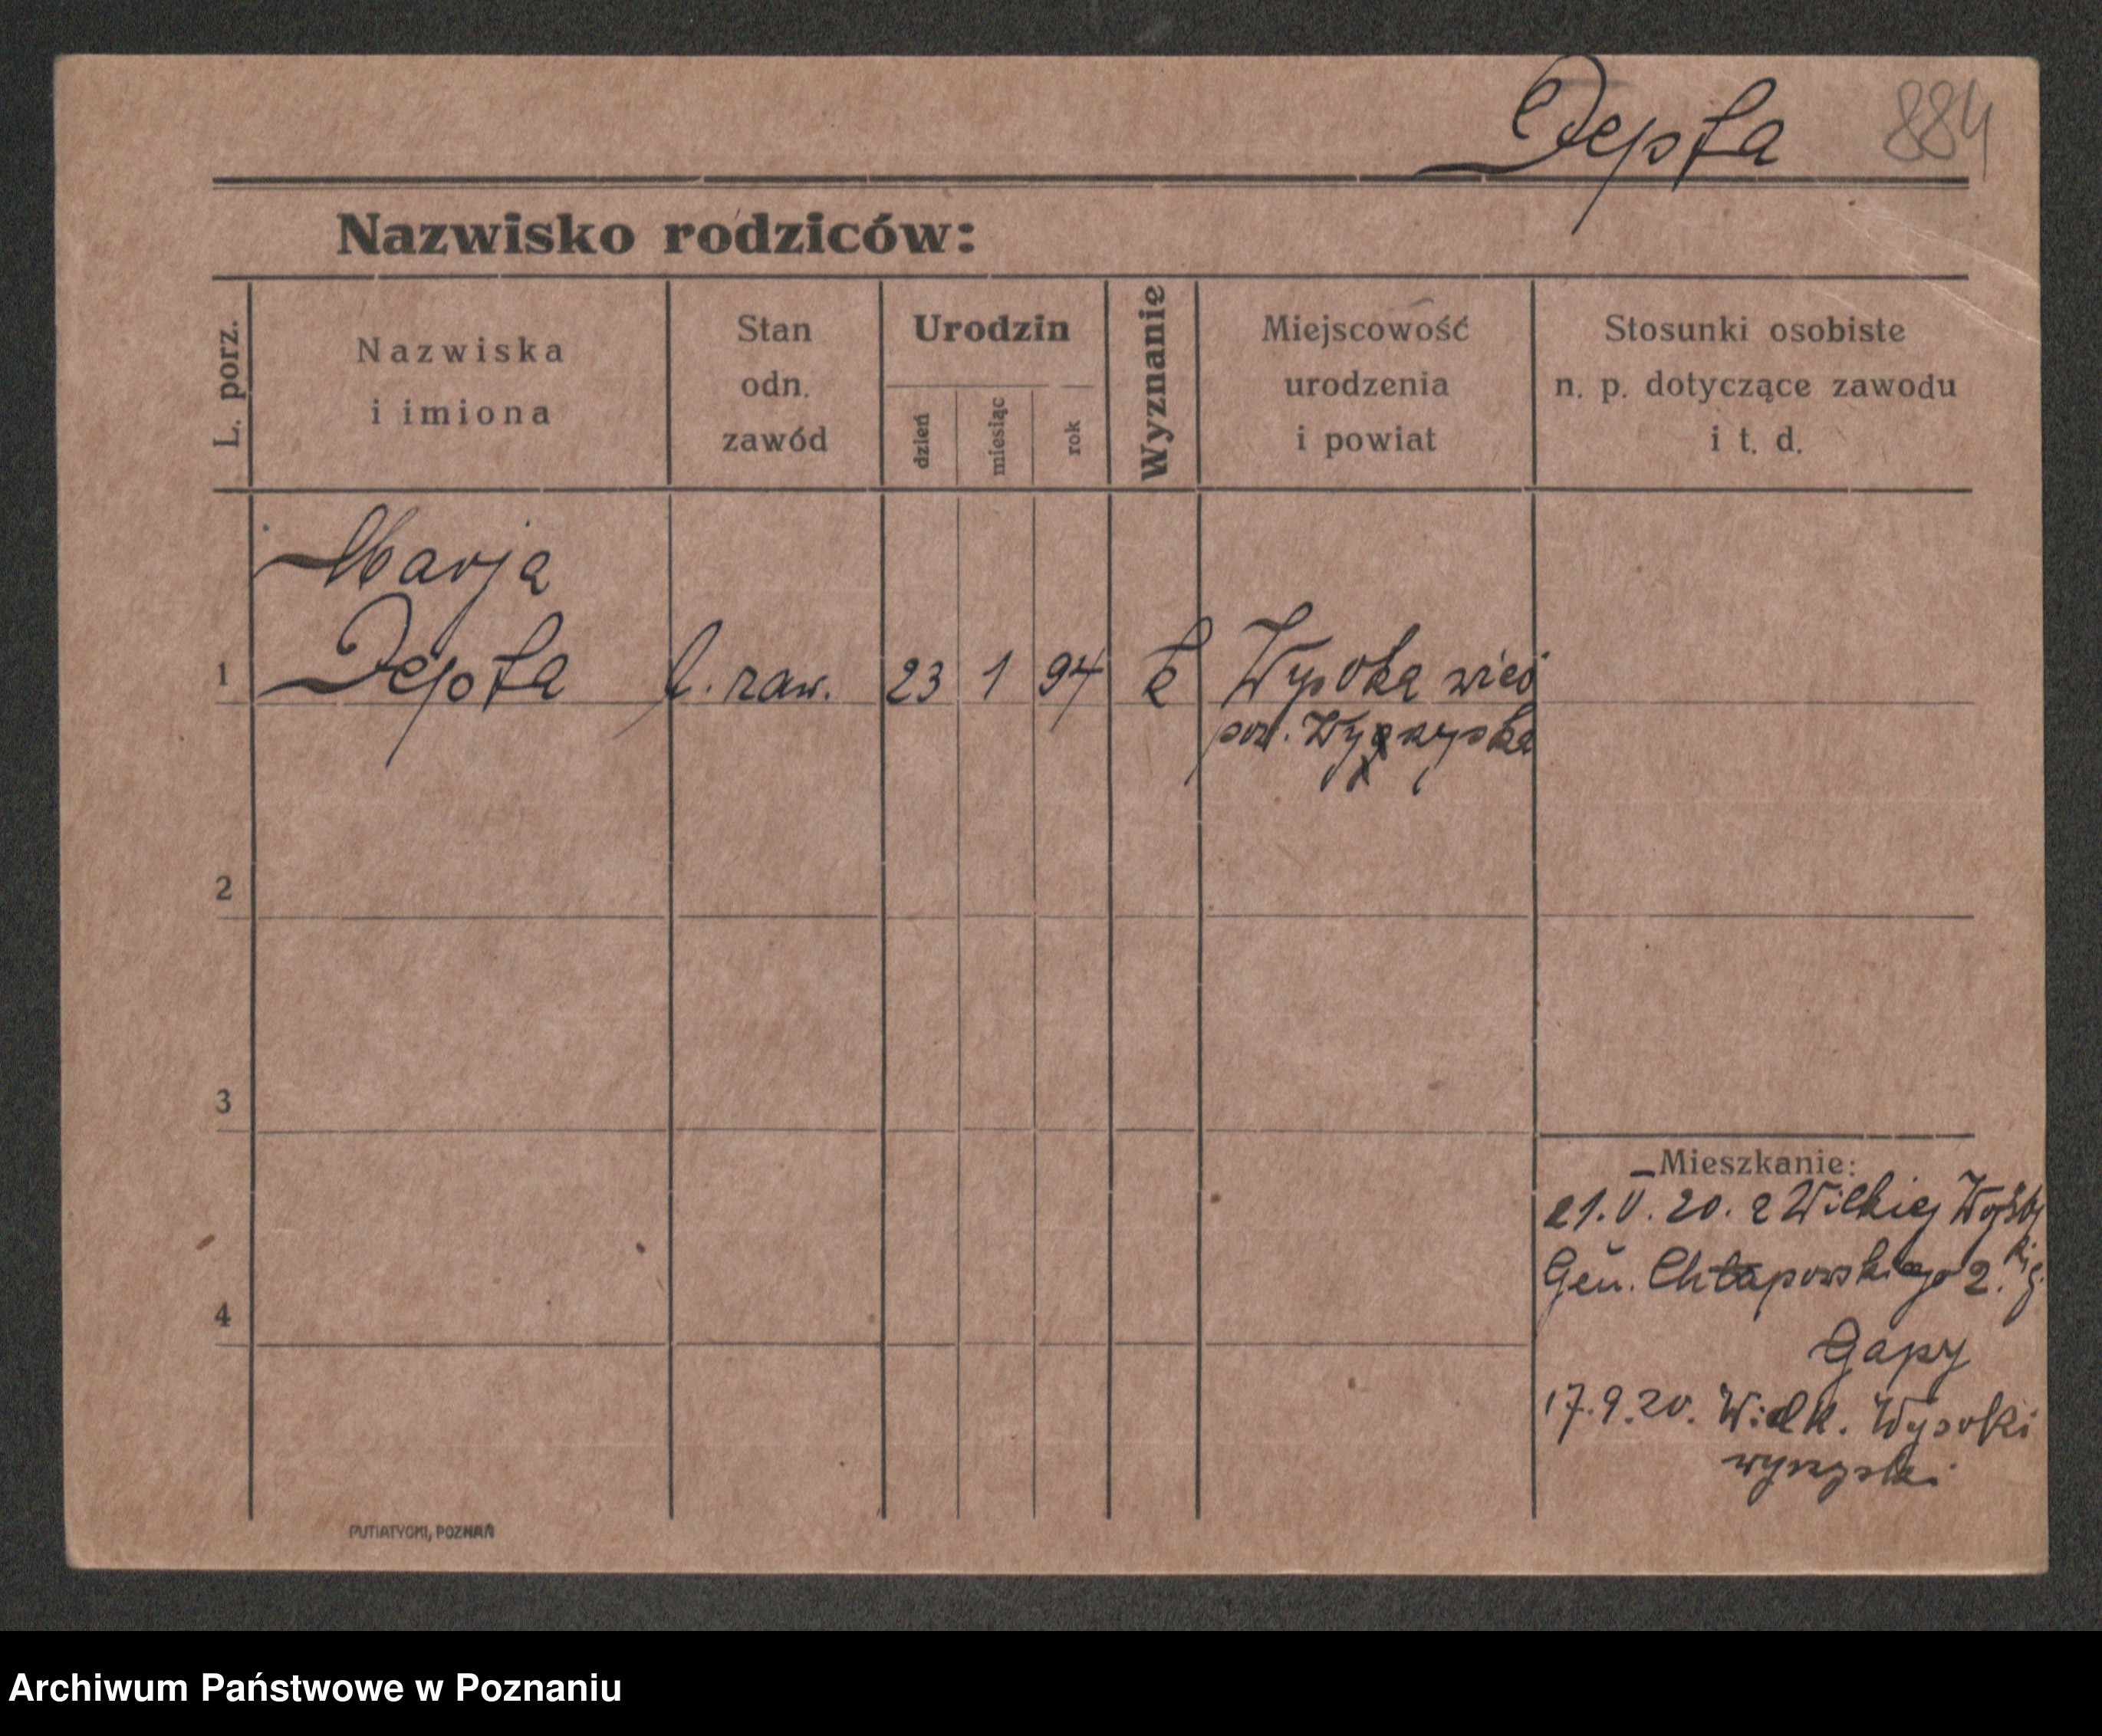 Depta 884
Nazwisko rodziców:
L. porz.
Nazwiska
i imiona
Stan
odn.
zawód
Urodzin
dzień
miesiąc
rok
Wyznanie
Miejscowość
urodzenia
i powiat
Stosunki osobiste
n. p. dotyczące zawodu
i t. d.
Marja
1 Depta b. zaw. 23 1 94 k Wysoka wieś
pow. Wyrzyska
2
3
4
Mieszkanie:
21. V. 20. z Wilkiej
Gen. Chłapowskiego 2.
Gapy
17.9.20. Wielk. Wysoki
wyrzyski
PUTIATYCKI, POZNAŃ
Archiwum Państwowe w Poznaniu